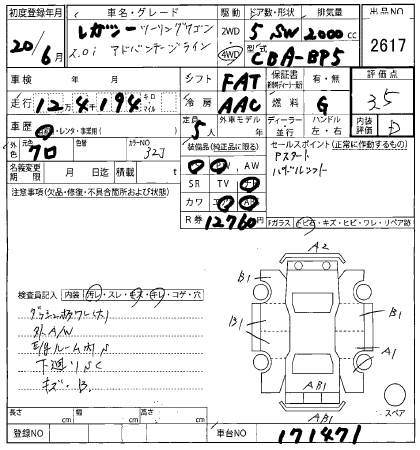 初度登録年月 車名・グレード 駆動 ドア数・形状 排気量 出品NO
20/6月 レガシーツーリングワゴン 2WD 5 SW 2000cc 2617
2.0i アドバンテージライン 4WD 型式 CBA-BP5
車検 年 月 シフト FAT 保証書 有・無 評価点
走行 12万4千194 キロ・マイル 冷房 AAC 燃料 G 3.5
車歴 ・レンタ・事業用( ) 定員 5人 外車モデル 年 ディーラー・並行 ハンドル 左・右 内装評価 D
外色 元色 クロ 色替 カラーNO 32J 装備品(純正品に限る) セールスポイント(正常に作動するもの)
PS PW AW Pスタート
名義変更期限 月 日迄 積載 t SR TV ナビ パドルシフト
注意事項(欠品・修復・不具合箇所および状態) カワ
R券 12760円 Fガラス トビ石・キズ・ヒビ・ワレ・リペア跡
A2
B1 B1
検査員記入 内装 汚れ・スレ・キズ・キレ・コゲ・穴
ダッシュボタワレ(大) B1 B1
外A/W
下廻りSC A1
キズ・B.
AB1
スペア
長さ cm 幅 cm 高さ cm AB1
登録NO 車台NO 171471